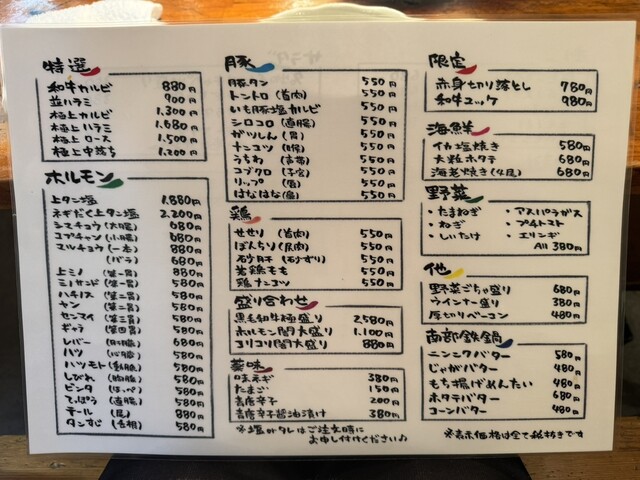 特選
和牛カルビ 880円
並ハラミ 900円
極上カルビ 1,300円
極上ハラミ 1,680円
極上ロース 1,500円
極上中落ち 1,200円
ホルモン
上タン塩 1,880円
ネギだく上タン塩 2,200円
シマチョウ(大腸) 680円
コプチャン(小腸) 680円
マルチョウ(一本) 880円
(バラ) 680円
上ミノ (第一胃) 880円
ミノサンド(第一胃) 580円
ハチノス (第二胃) 580円
ヤン (第二胃) 580円
センマイ (第三胃) 580円
ギャラ (第四胃) 580円
レバー (肝臓) 680円
ハツ (心臓) 580円
ハツモト(動脈) 580円
しびれ (胸腺) 580円
ピンタ (ほっぺ) 580円
てっぽう (直腸) 580円
テール (尾) 880円
タンすじ (舌根) 580円
豚
豚タン 550円
トントロ (首肉) 550円
いも豚塩カルビ 550円
シロコロ (直腸) 550円
がツしん (胃) 550円
ナンコツ (喉) 550円
うちわ 550円
コブクロ (子宮) 550円
リップ 550円
はなはな 550円
鶏
せせり (首肉) 550円
ぼんちり (尻肉) 550円
砂肝 (砂ずり) 550円
若鶏もも 550円
鶏ナンコツ 550円
盛り合わせ
黒毛和牛極盛り 2,580円
ホルモン闇大盛り 1,100円
コリコリ闇大盛り 880円
薬味
味ネギ 380円
たまご 150円
青唐辛子 200円
青唐辛子醤油漬け 380円
※塩orタレはご注文時に
お申し付けください♪
限定
赤身切り落とし 780円
和牛ユッケ 980円
海鮮
イカ塩焼き 580円
大粒ホタテ 680円
海老焼き(4尾) 680円
野菜
・たまねぎ ・アスパラガス
・ねぎ ・プチトマト
・しいたけ ・エリンギ
All 380円
他
野菜ごちゃ盛り 680円
ウインナー盛り 380円
厚切りベーコン 480円
南部鉄鍋
ニンニクバター 580円
じゃがバター 480円
もち揚げめんたい 480円
ホタテバター 680円
コーンバター 480円
※表示価格は全て税抜きです